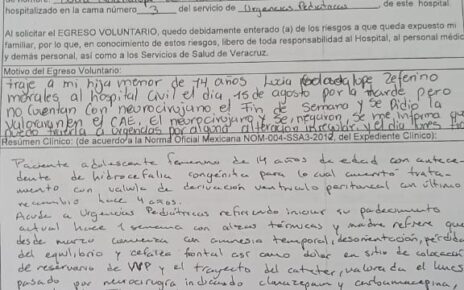 hospitalizado en la cama número 3 del servicio de Urgencias Pediatricas, de este hospital
Al solicitar el EGRESO VOLUNTARIO, quedo debidamente enterado (a) de los riesgos a que queda expuesto mi
familiar, por lo que, en conocimiento de estos riesgos, libero de toda responsabilidad al Hospital, al personal médico
y demás personal, así como a los Servicios de Salud de Veracruz.
Motivo del Egreso Voluntario:
traje a mi hija menor de 14 años Lucia Zeferino
morales al hospital Civil el dia, 15 de agosto por la tarde pero
no cuentan con neurocirujano el Fin de Semana y se Pidio la
Valoraran en el CAE, El neurocirujano y se negaron, se me informa que
puedo traerla a urgencias por alguna alteracion y el dia lunes
Resúmen Clínico: (de acuerdo a la Norma Oficial Mexicana NOM-004-SSA3-2012, del Expediente Clínico):
Paciente adolescente femenino de 14 años de edad con antece-
dente de hidrocefalia congénita para lo cual ameritó trata-
miento con valvula de derivación ventriculo peritoneal con último
recambio hace 4 años.
Acude a Urgencias Pediatricas refiriendo iniciar su padecimiento
actual hace 1 semana con alzas térmicas y madre refiere que
desde marzo comienza con amnesia temporal, desorientación, pérdida
del equilibrio y cefalea frontal asi como dolor en sitio de colocación
de reservorio de VVP y el trayecto del cateter, valorada el lunes
pasado por neurocirugía indicando y